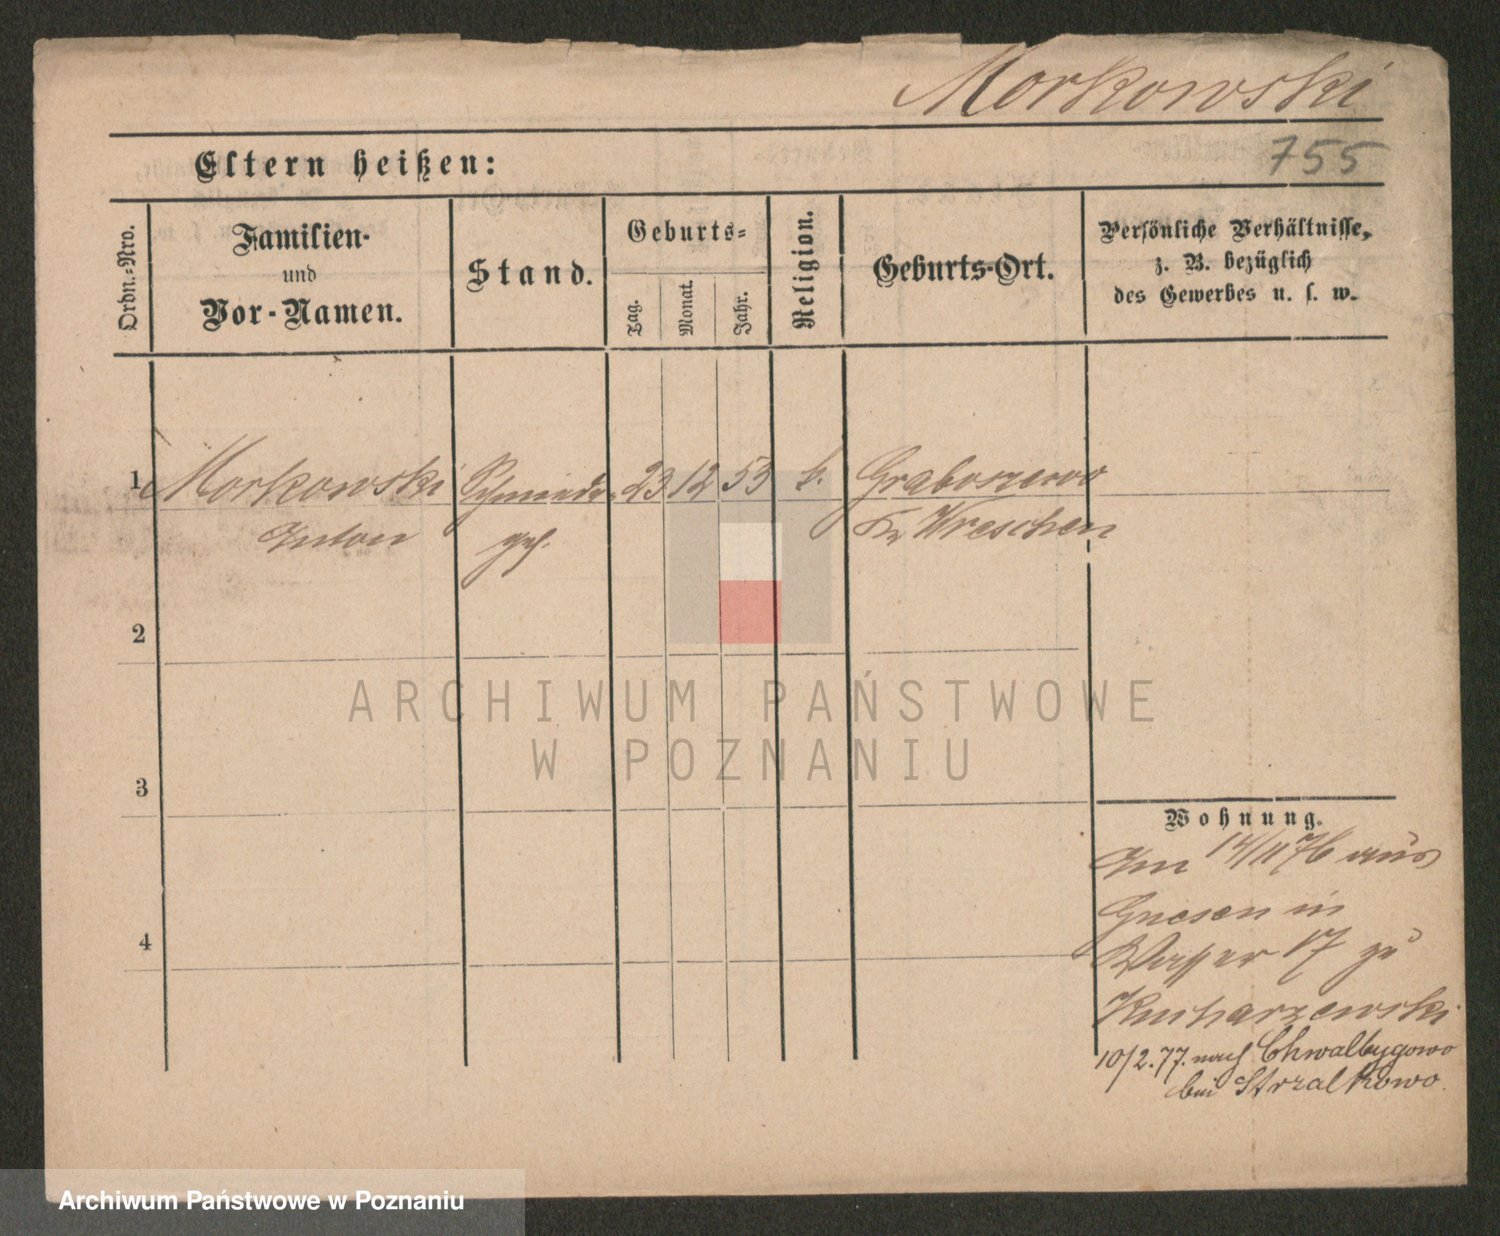 Morkowski
755
Eltern heißen:
Ordn.-Nro.
Familien-
und
Vor-Namen.
Stand.
Geburts-
Tag.
Monat.
Jahr.
Religion.
Geburts-Ort.
Persönliche Verhältnisse,
z. B. bezüglich
des Gewerbes u. s. w.
1 Morkowski Schmiede- 23 12 53 k. Graboszewo
Anton ges. Kr Wreschen
2
3
4
Wohnung.
Am 14/11 76 aus
Gnesen in
Wasser 17 zu
Kucharzewski
10/2.77. nach Chwalbogowo
bei Strzalkowo.
ARCHIWUM PAŃSTWOWE
W POZNANIU
Archiwum Państwowe w Poznaniu